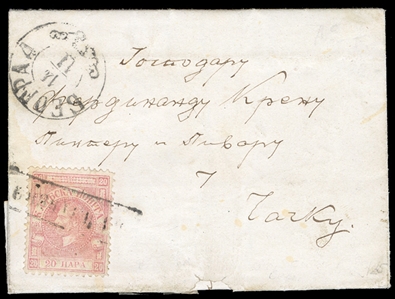 БЕОГРАД
14
11
Господару
Фердинанду Крену
Пинтеру и Пивару
у
Чачку.
20
20
20 ПАРА 20